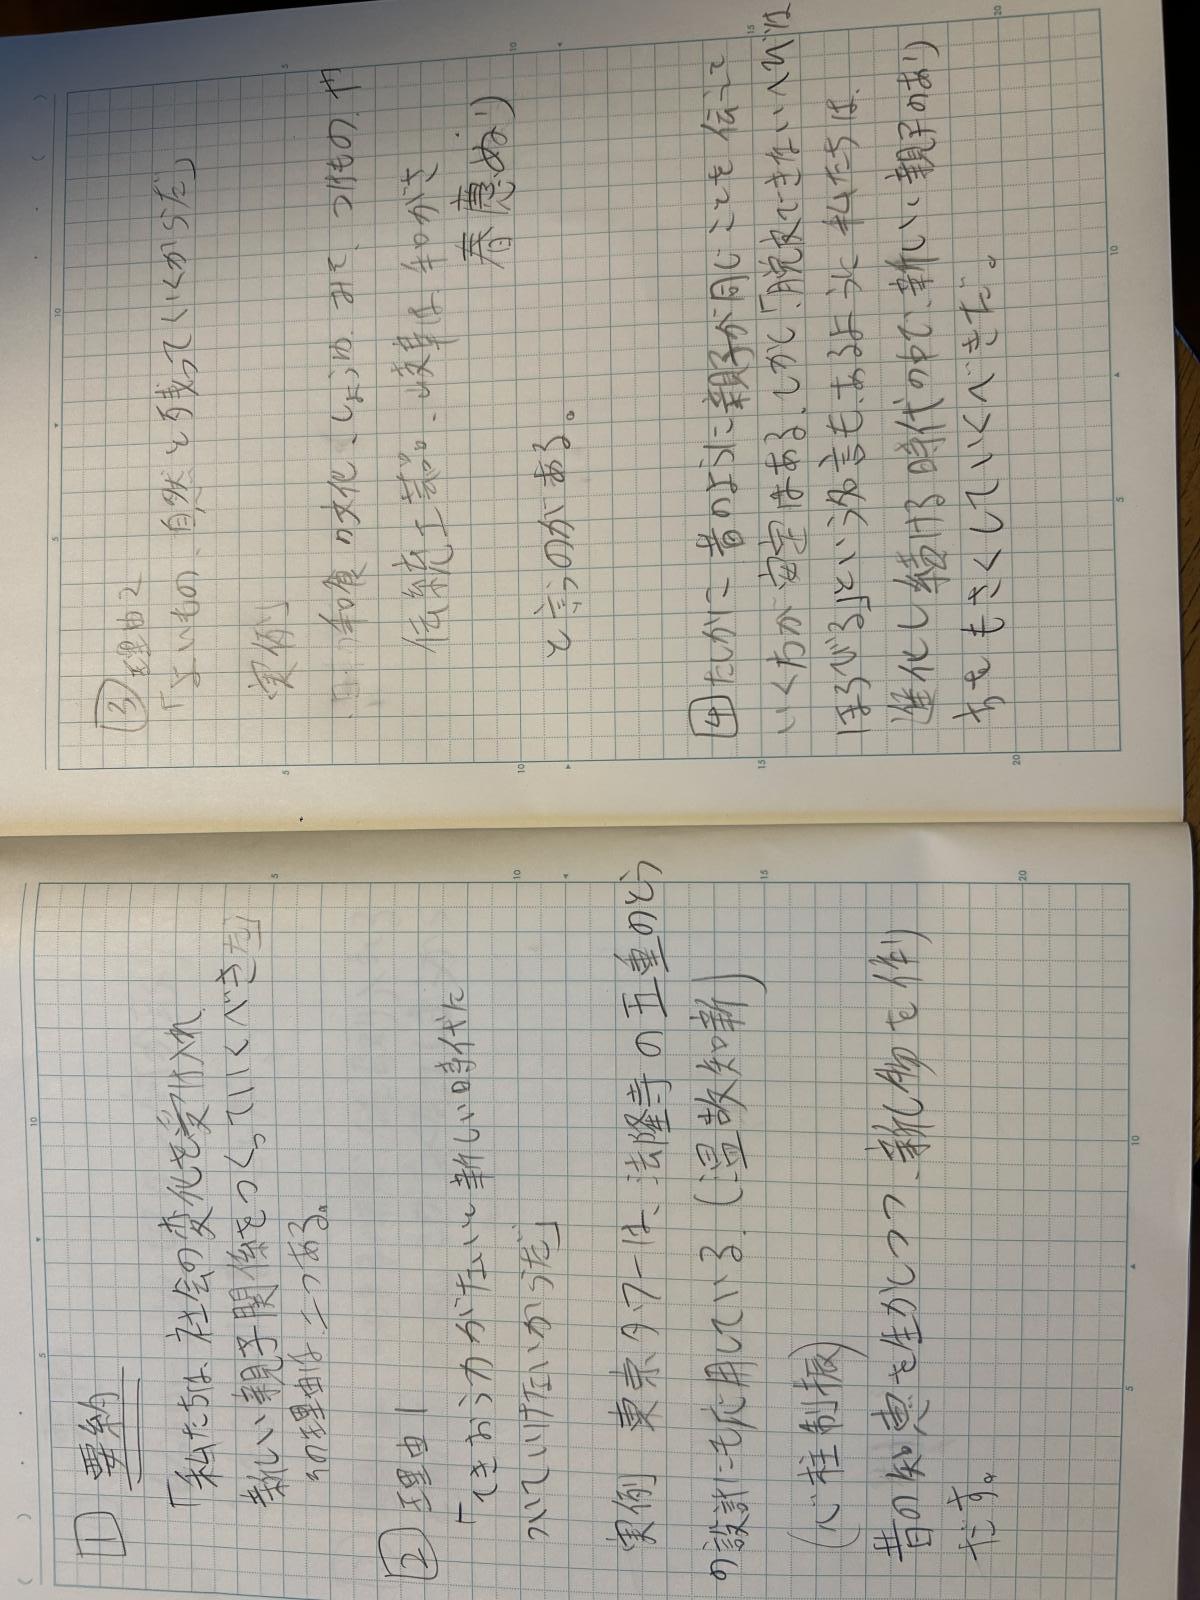 1 要約
「私たちは社会の変化を受け入れ
新しい親子関係をつくっていくべきだ」
その理由は二つある。
2 理由1
「てきおう力がないと新しい時代に
ついていけないからだ」
実例 東京タワーは、法隆寺の五重のとう
の設計にも応用している。(温故知新)
(心柱制振)
昔の知恵を生かしつつ、新しい物を作り
だす。
3 理由2
「よいもの、自然と残っていくからだ」
実例」
和食の文化、しょうゆ、みそ、つけもの、
伝統工芸品、岐阜は、和がさ
春慶ぬり)
と言うのがある。
4 たしかに昔のように親子が同じことを伝えて
いく方が安定はある。しかし「脱皮できないヘびは
ほろびる」という名言もあるように私たちは、
進化し続ける時代の中で、新しい親子のあり
方をもさくしていくべきだ。